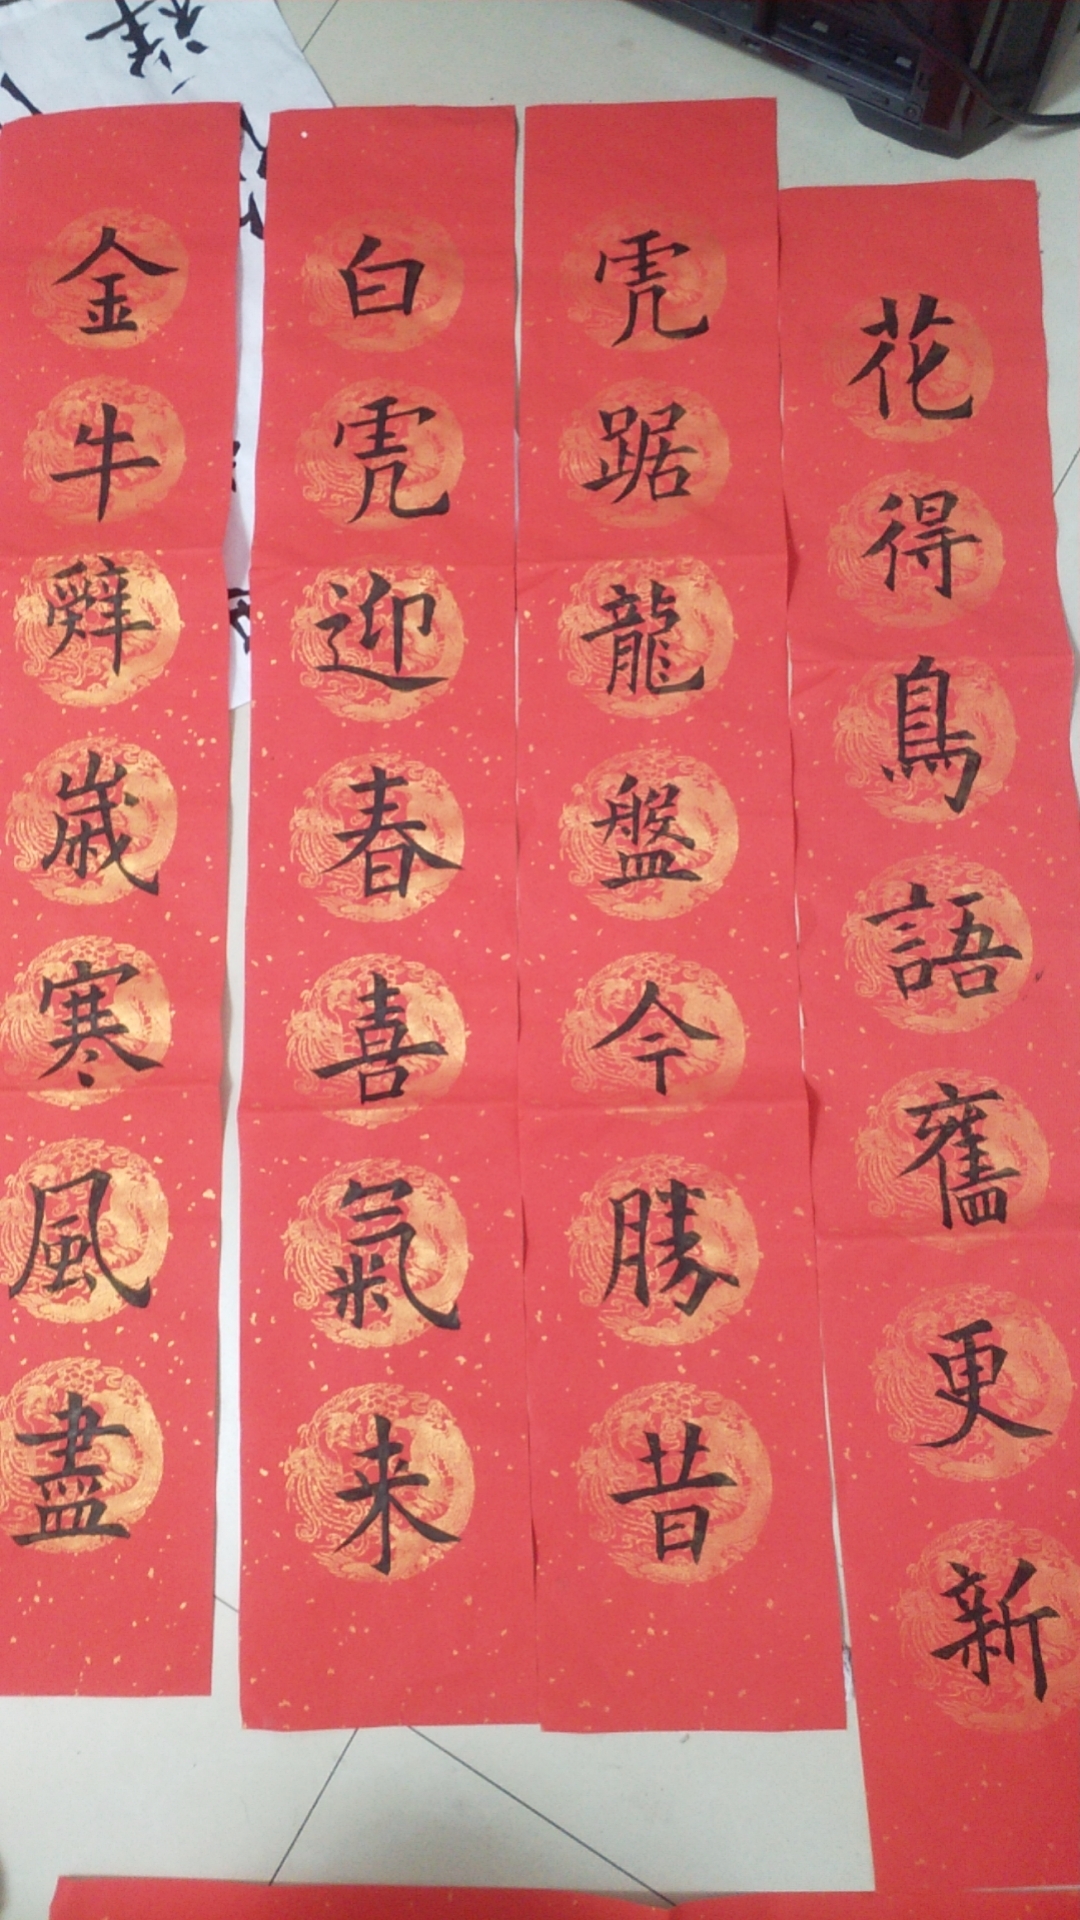 金牛辭歲寒風盡
白虎迎春喜氣来
虎踞龍盤今勝昔
花得鳥語舊更新